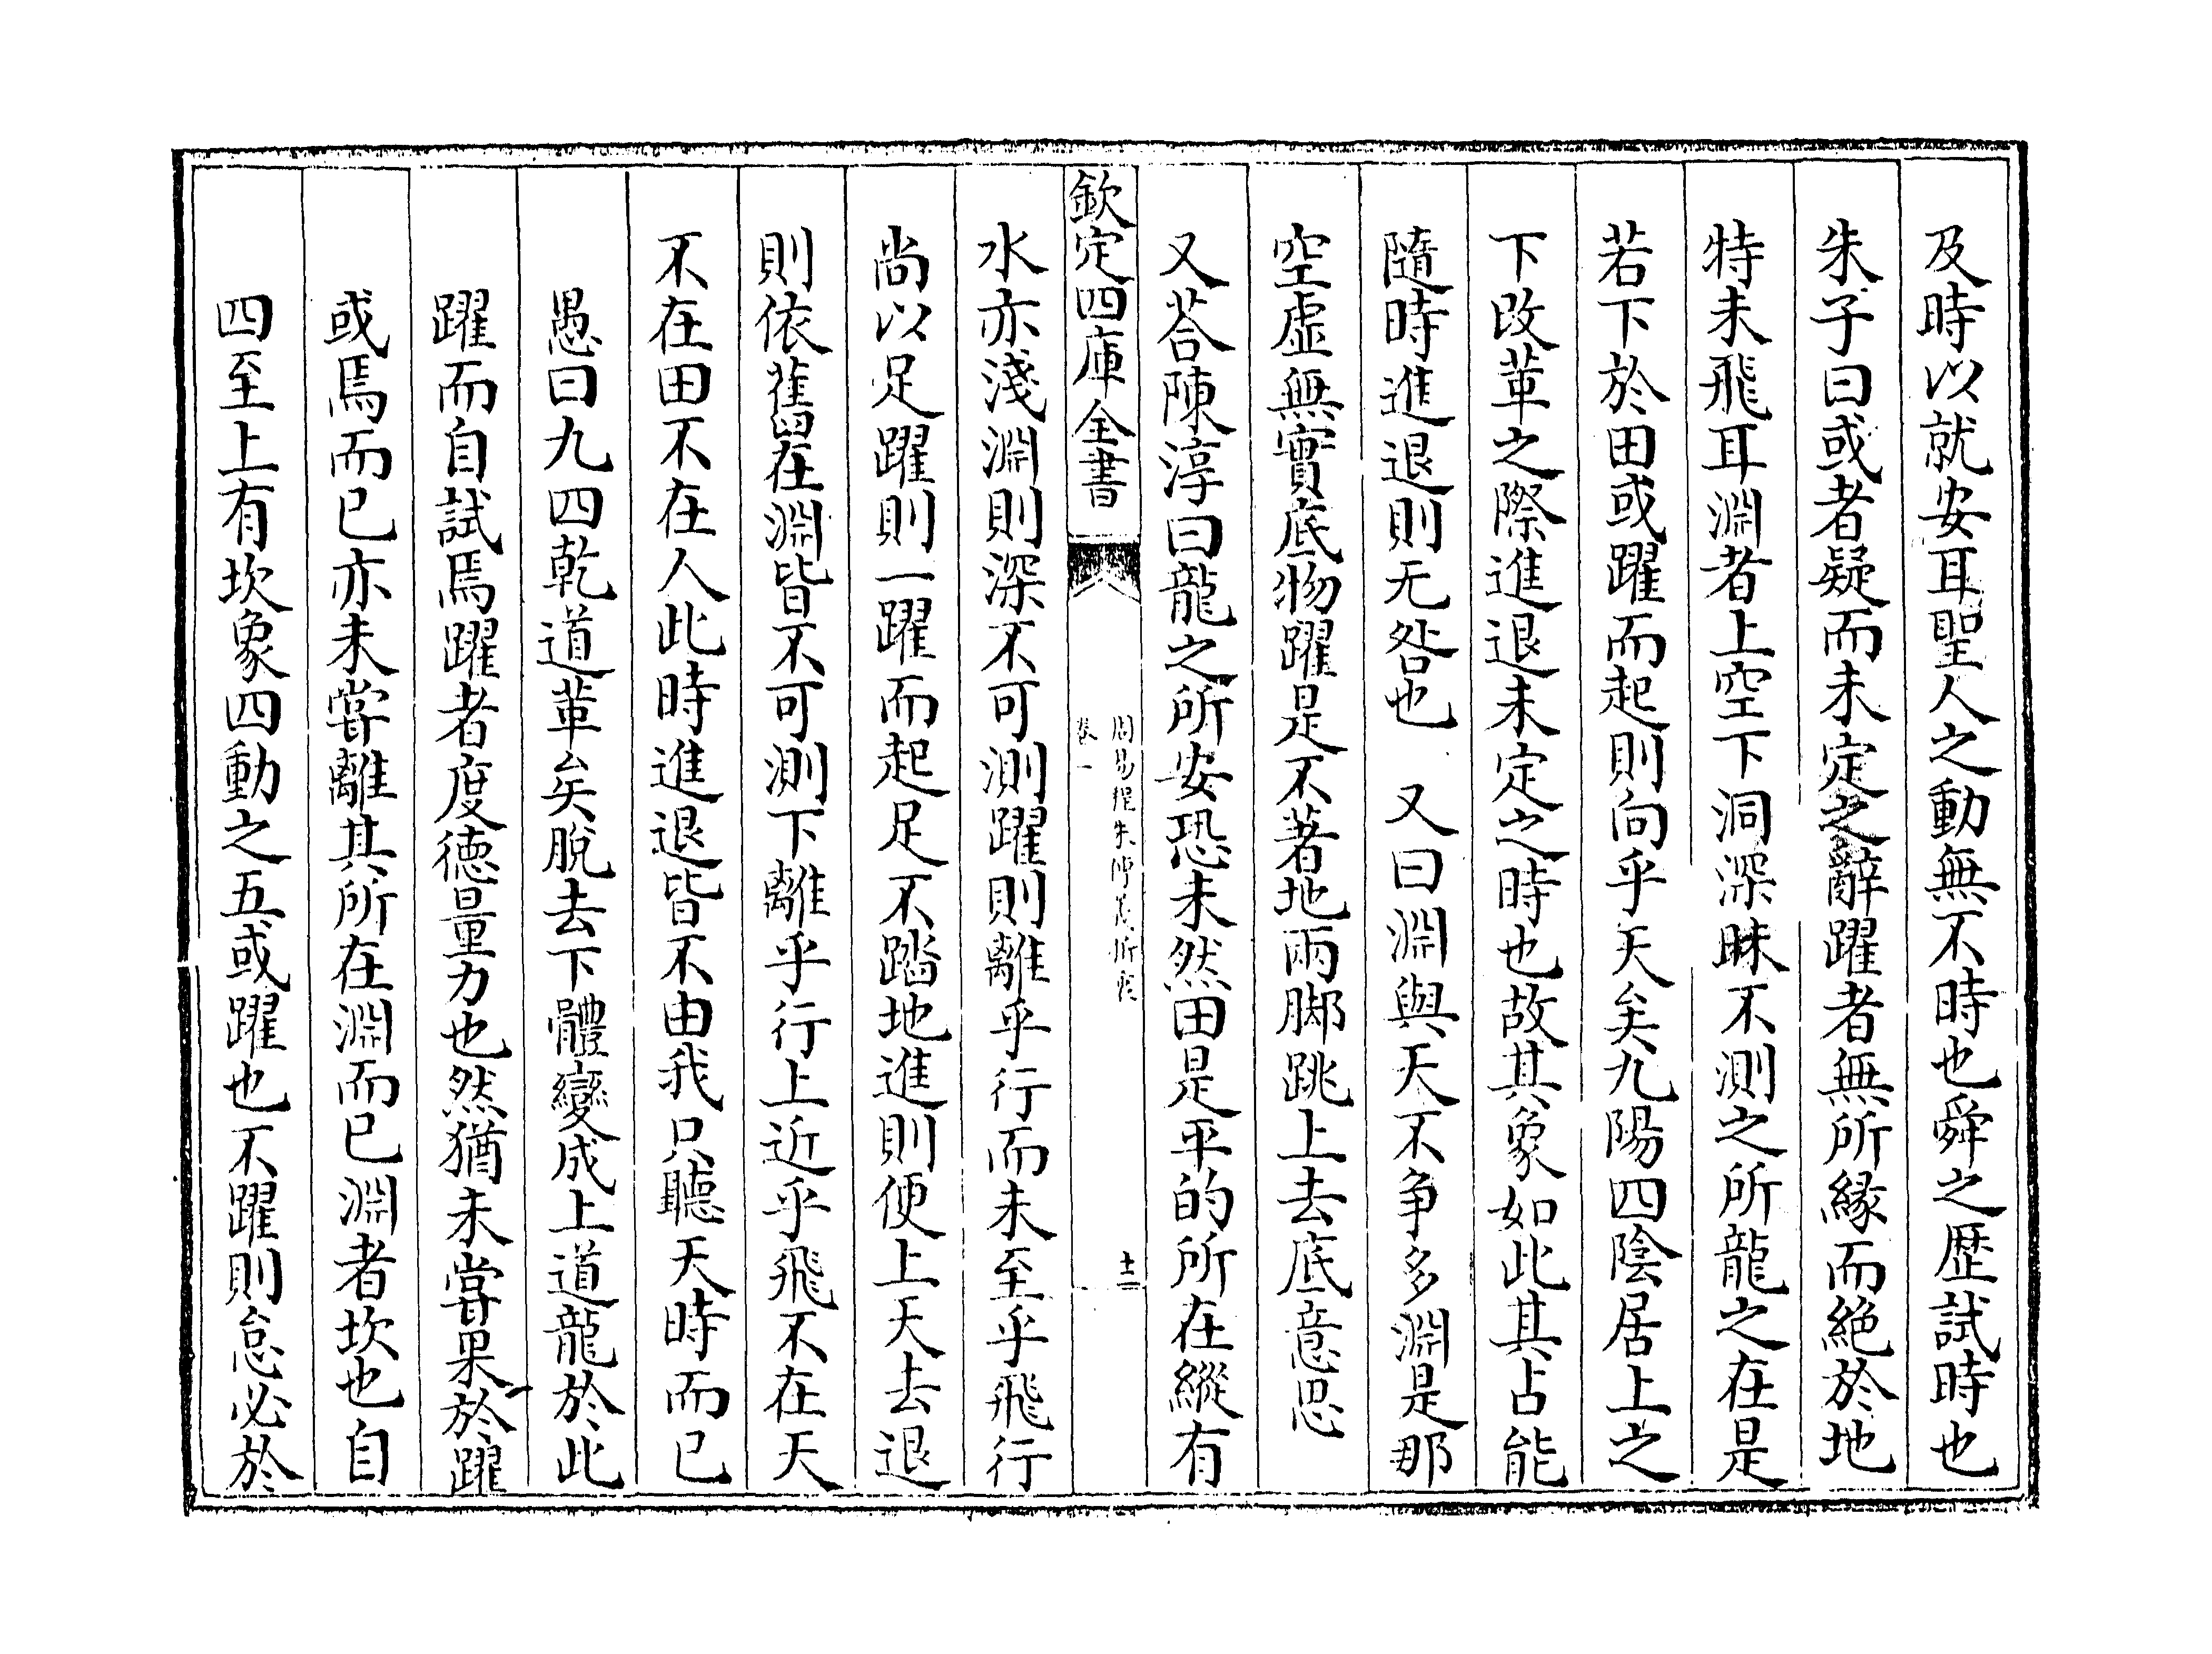 及時以就安耳聖人之動無不時也舜之歴試時也
朱子曰或者疑而未定之辭躍者無所縁而絶於地
特未飛耳淵者上空下洞深昧不測之所龍之在是
若下於田或躍而起則向乎天矣九陽四陰居上之
下改革之際進退未定之時也故其象如此其占能
隨時進退則无咎也 又曰淵與天不争多淵是那
空虛無實底物躍是不著地兩脚跳上去底意思
又荅陳淳曰龍之所安恐未然田是平的所在縱有
欽定四庫全書
周易程朱傳義折衷
卷一
十二
水亦淺淵則深不可測躍則離乎行而未至乎飛行
尚以足躍則一躍而起足不踏地進則便上天去退
則依舊在淵皆不可測下離乎行上近乎飛不在天
不在田不在人此時進退皆不由我只聽天時而已
愚曰九四乾道革矣脫去下體變成上道龍於此
躍而自試焉躍者度徳量力也然猶未嘗果於躍
或焉而已亦未嘗離其所在淵而已淵者坎也自
四至上有坎象四動之五或躍也不躍則怠必於